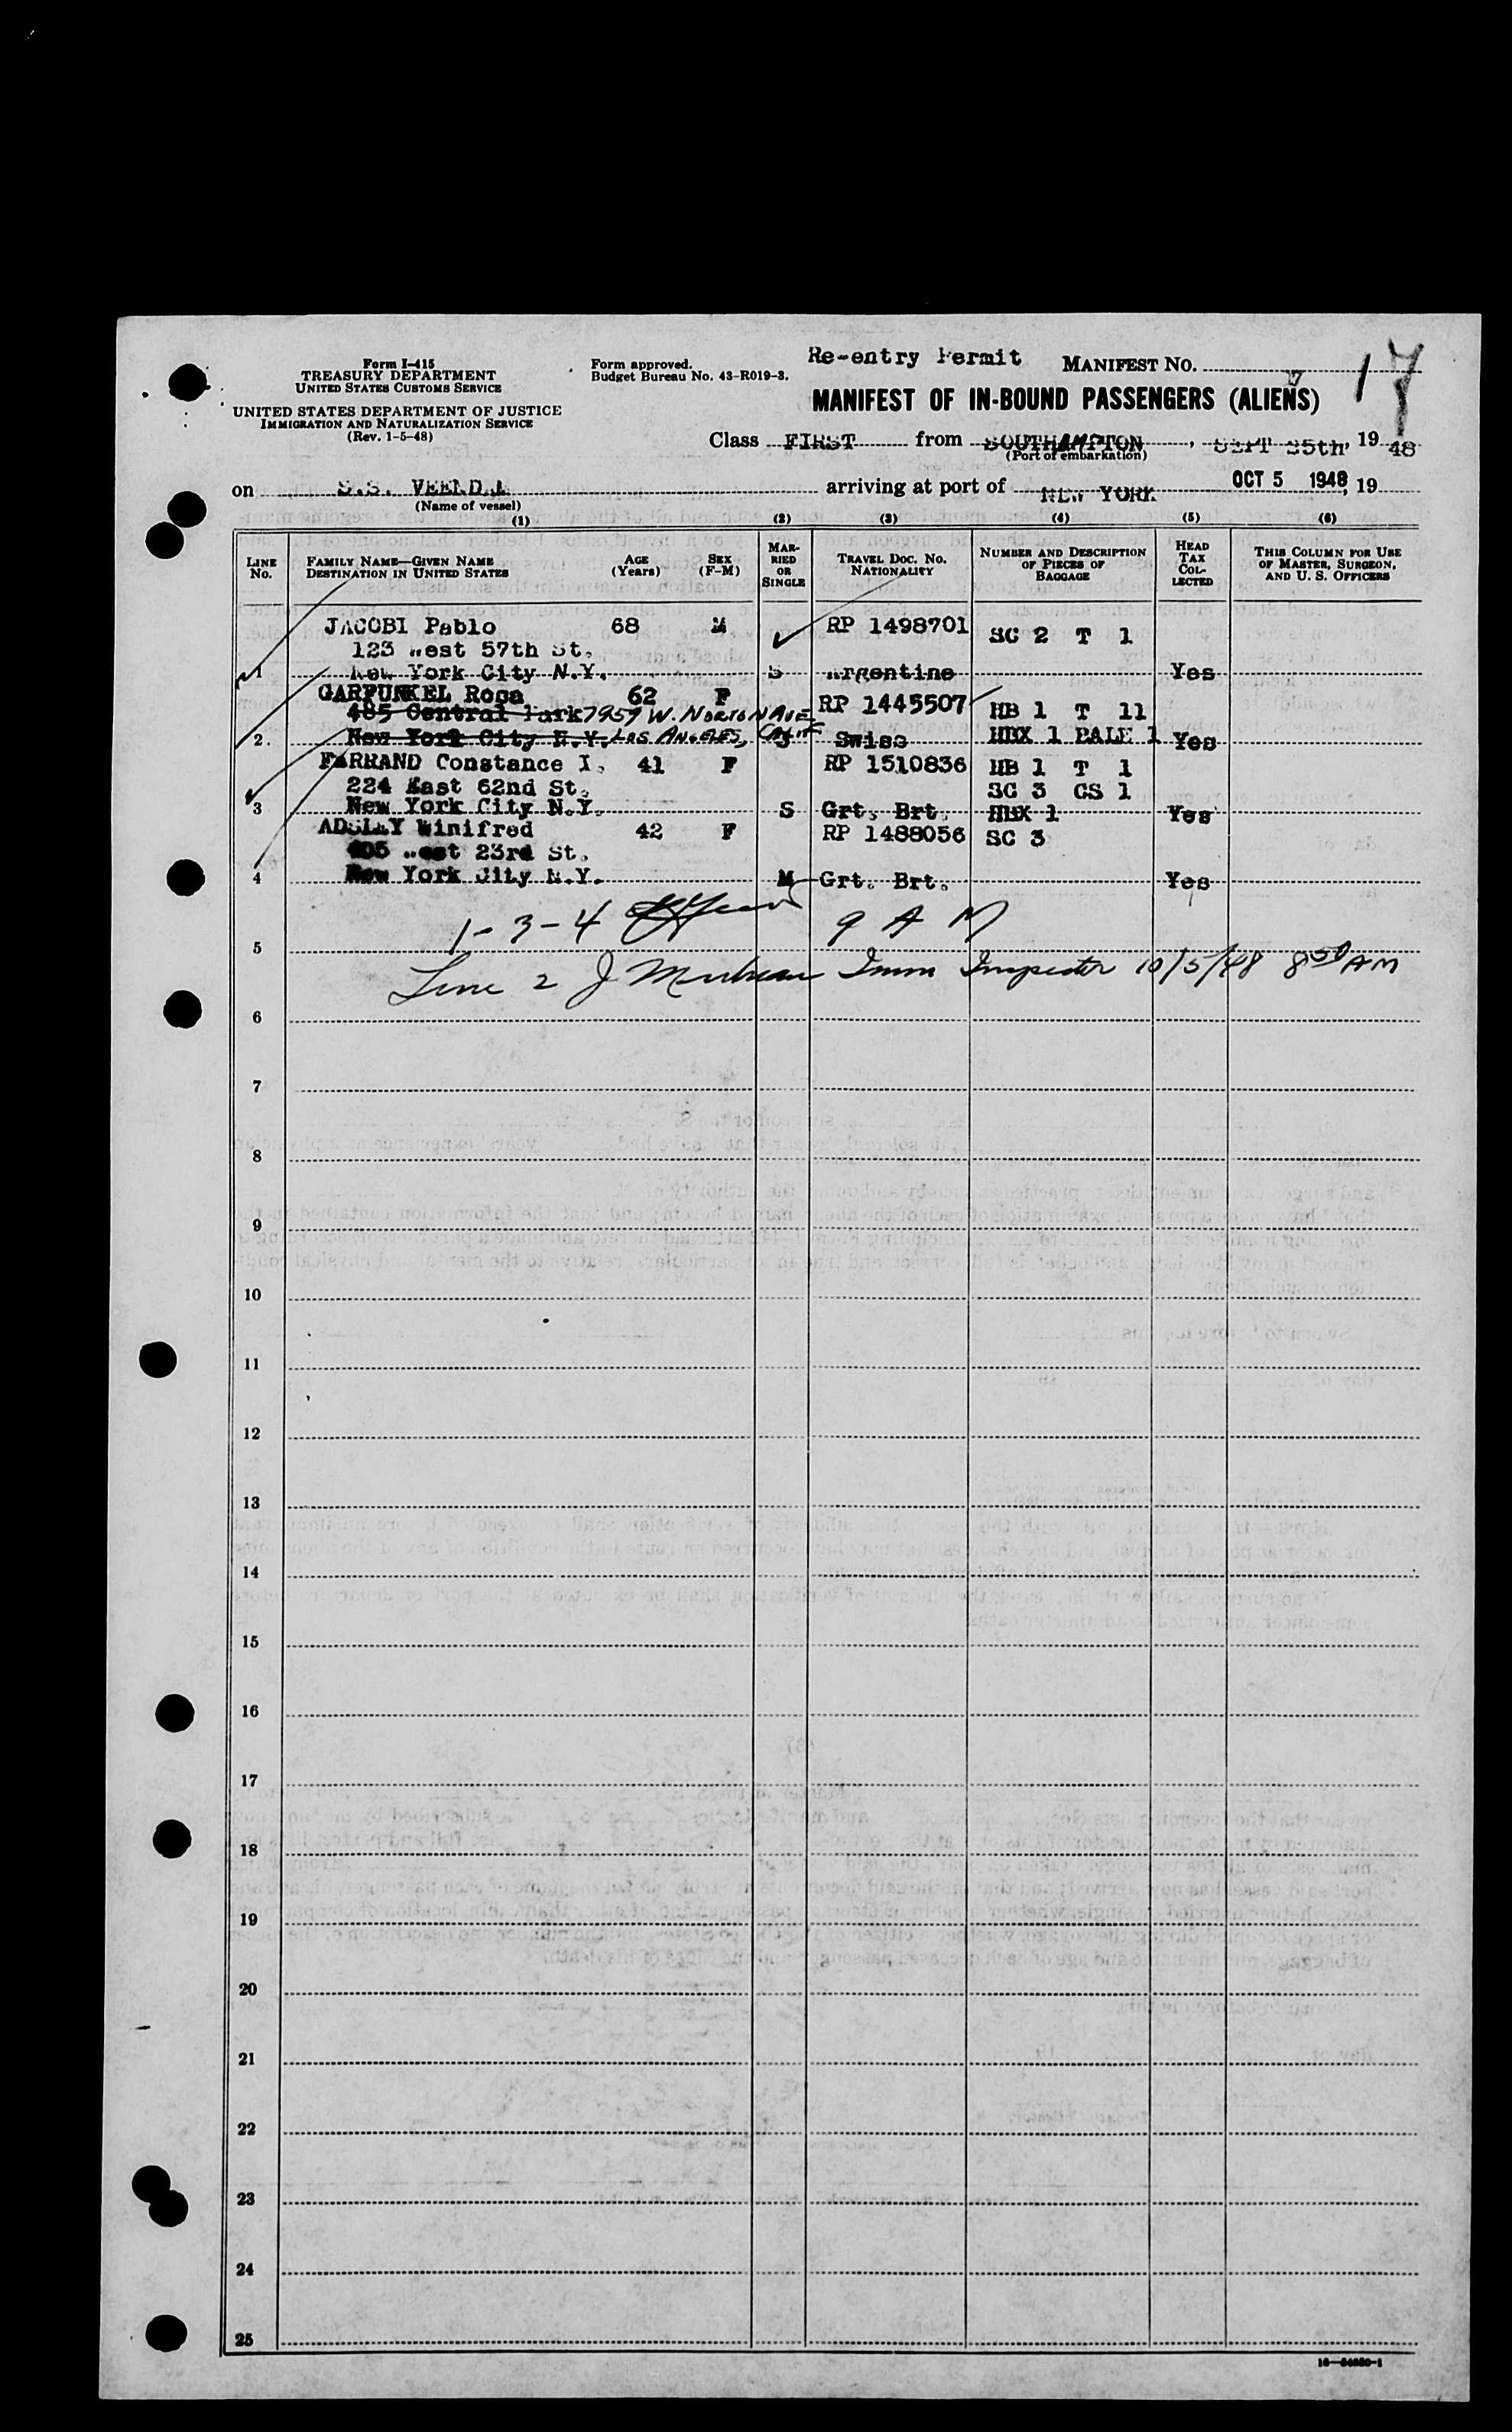 Form I-415
TREASURY DEPARTMENT
UNITED STATES CUSTOMS SERVICE
UNITED STATES DEPARTMENT OF JUSTICE
IMMIGRATION AND NATURALIZATION SERVICE
(Rev. 1-5-48)
Form approved.
Budget Bureau No. 43-R019-3.
Re-entry Permit MANIFEST No. 17
MANIFEST OF IN-BOUND PASSENGERS (ALIENS)
Class FIRST from SOUTHAMPTON, SEPT 25th, 19 48
(Port of embarkation)
on S.S. VEENDAM arriving at port of NEW YORK OCT 5 1948, 19
(Name of vessel)
(1) (2) (3) (4) (5) (6)
LINE No. FAMILY NAME—GIVEN NAME DESTINATION IN UNITED STATES AGE (Years) SEX (F-M) MARRIED OR SINGLE TRAVEL DOC. NO. NATIONALITY NUMBER AND DESCRIPTION OF PIECES OF BAGGAGE HEAD TAX COLLECTED THIS COLUMN FOR USE OF MASTER, SURGEON, AND U. S. OFFICERS
JACOBI Pablo 68 M RP 1498701 SC 2 T 1
123 West 57th St.
1 New York City N.Y. S Argentine Yes
GARFUNKEL Rosa 62 F RP 1445507 HB 1 T 11
485 Central Park 7959 W. NORTON AVE
2. New York City N.Y. LOS ANGELES, CALIF Swiss HBX 1 BALE 1 Yes
FARRAND Constance I. 41 F RP 1510836 HB 1 T 1
224 East 62nd St. SC 3 CS 1
3 New York City N.Y. S Grt. Brt. HBX 1 Yes
ADSLEY Winifred 42 F RP 1488056 SC 3
405 West 23rd St.
4 New York City N.Y. M Grt. Brt. Yes
1-3-4 9 A M
5
Line 2 J Imm Inspector 10/5/48 8:50 AM
6
7
8
9
10
11
12
13
14
15
16
17
18
19
20
21
22
23
24
25